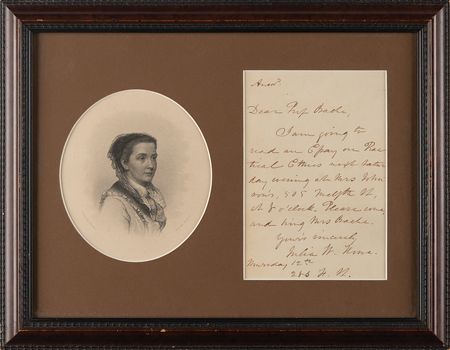 Ansd.
Dear Prof Bache,
I am going to
read an Essay on Prac
tical Ethics next Satur
day evening at Mrs John
son's, 505 Twelfth St,
at 8 o'clock. Please come
and bring Mrs Bache.
Yours sincerely
Julia W. Howe.
Thursday 12th